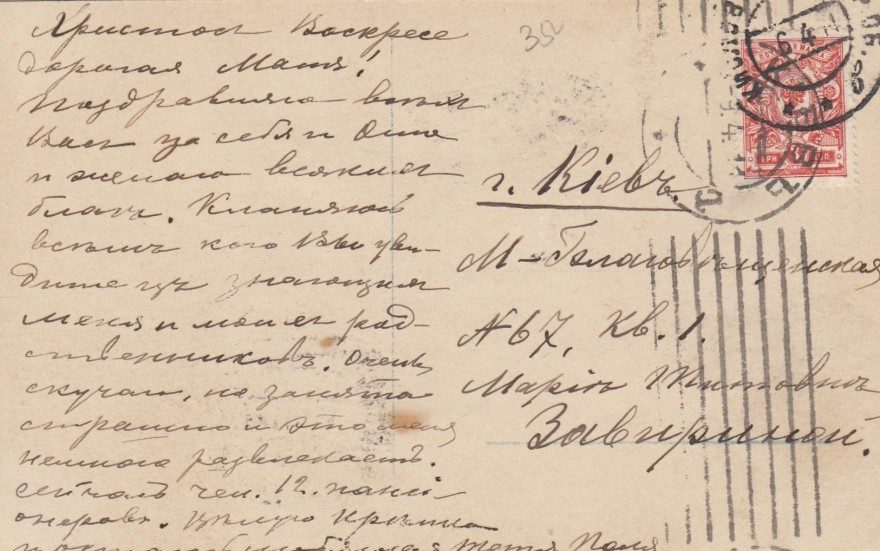 Христосъ Воскресе
дорогая Маня!
Поздравляю всѣхъ
Васъ за себя и Олю
и желаю всякихъ
благъ. Кланяюсь
всѣмъ кого Вы уви-
дите изъ знающихъ
меня и моихъ род-
ственниковъ. Очень
скучаю, но занята
страшно и это меня
немного развлекаетъ.
сейчасъ чел. 12. пансі-
онеровъ. Цѣлую крѣпко
тетя Поля
352
г. Кіевъ.
М-Благовѣщенская
N 67, кв. 1.
Маріи Титовнѣ
Завириной.
КІЕВЪ